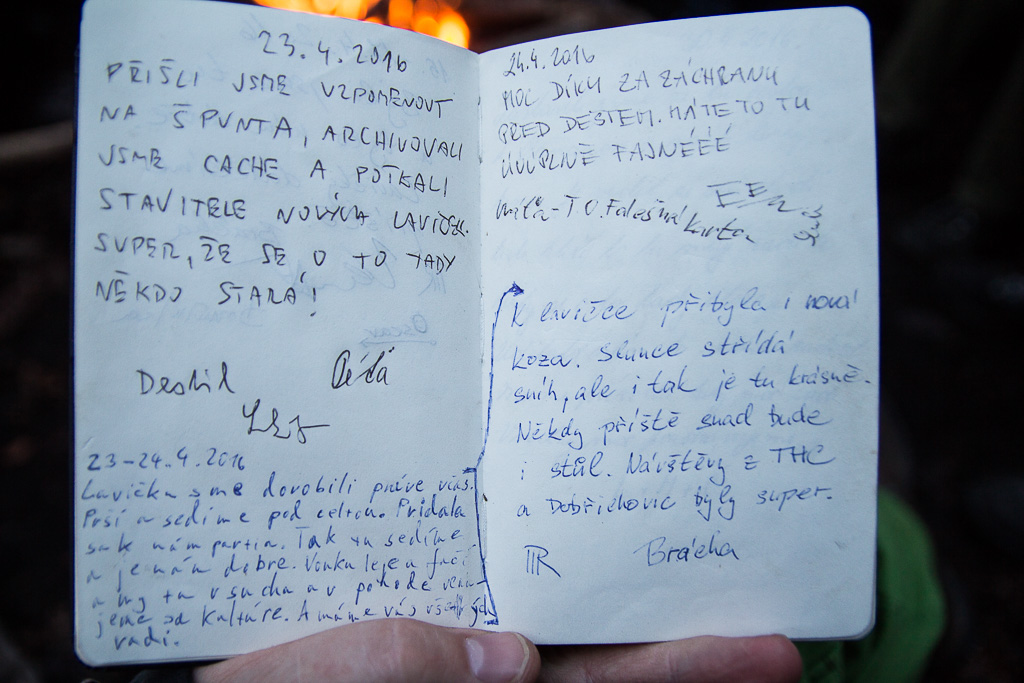 23.4.2016
PŘIŠLI JSME VZPOMENOUT
NA ŠPUNTA, ARCHIVOVALI
JSME CACHE A POTKALI
STAVITELE NOVÝCH LAVIČEK.
SUPER, ŽE SE O TO TADY
NĚKDO STARÁ!
Péťa
23-24.4.2016
Lavičku sme dorobili práve včas.
Prší a sedíme pod celtou. Pridala
sa k nám partia. Tak tu sedíme
a je nám dobre. Vonku leje a fučí
a my tu v suchu a v pohode
jeme od kultúre. A máme vás všetkých
radi.
24.4.2016
MOC DÍKY ZA ZÁCHRANU
PŘED DEŠTEM. MÁTE TO TU
ÚÚÚPLNĚ FAJNÉÉÉ
T.O. Falešná Karta
K lavičce přibyla i nová
koza. Slunce střídá
sníh, ale i tak je tu krásně.
Někdy příště snad bude
i stůl. Návštěvy z THC
a Dobřichovic byly super.
Brácha
Oscar